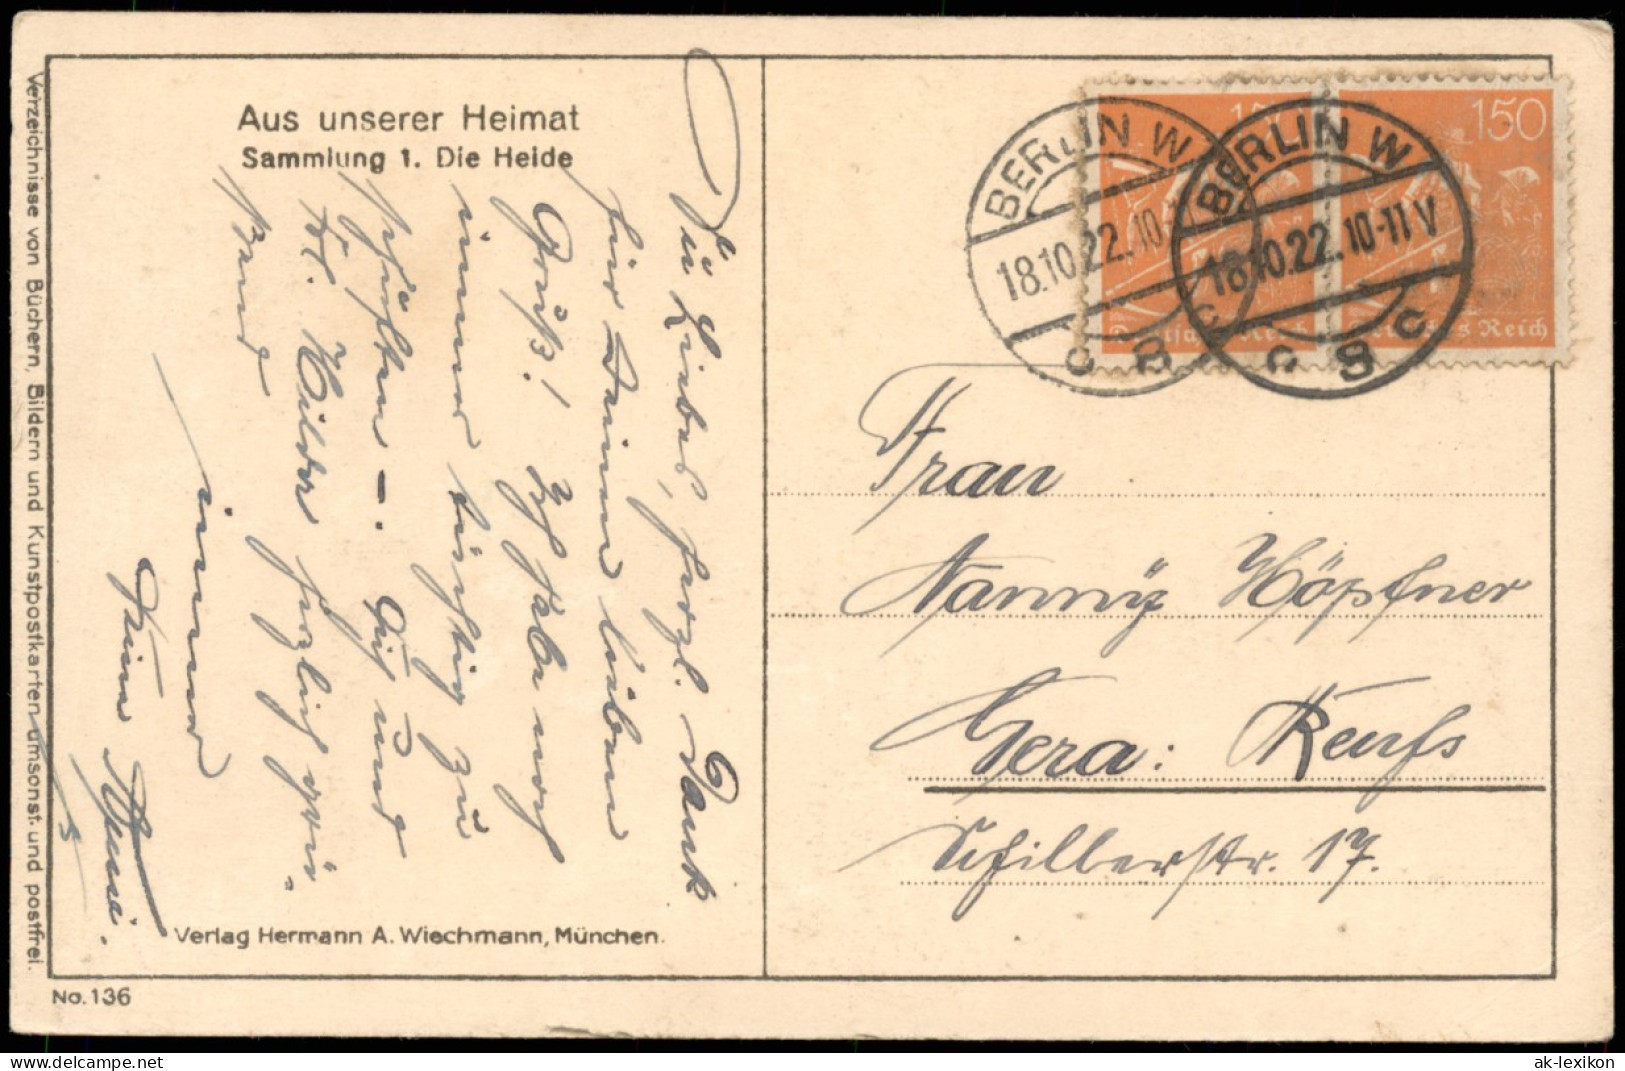 Aus unserer Heimat
Sammlung 1. Die Heide
Du Liebes, herzl. Dank
für Deinen lieben
Gruß! Ich habe noch
immer tüchtig zu
schaffen –. Gut und
herzlich grüßt
immer
Deine
Verlag Hermann A. Wiechmann, München.
No. 136
Verzeichnisse von Büchern, Bildern und Kunstpostkarten umsonst und postfrei.
150
150
Deutsches Reich
Deutsches Reich
BERLIN W
18.10.22.10
8
c
BERLIN W
18.10.22.10-11 V
c 8 c
Frau
Nanny Höpfner
Gera: Reufs
Schillerstr. 17.
hippostcard.com
ak-lexikon